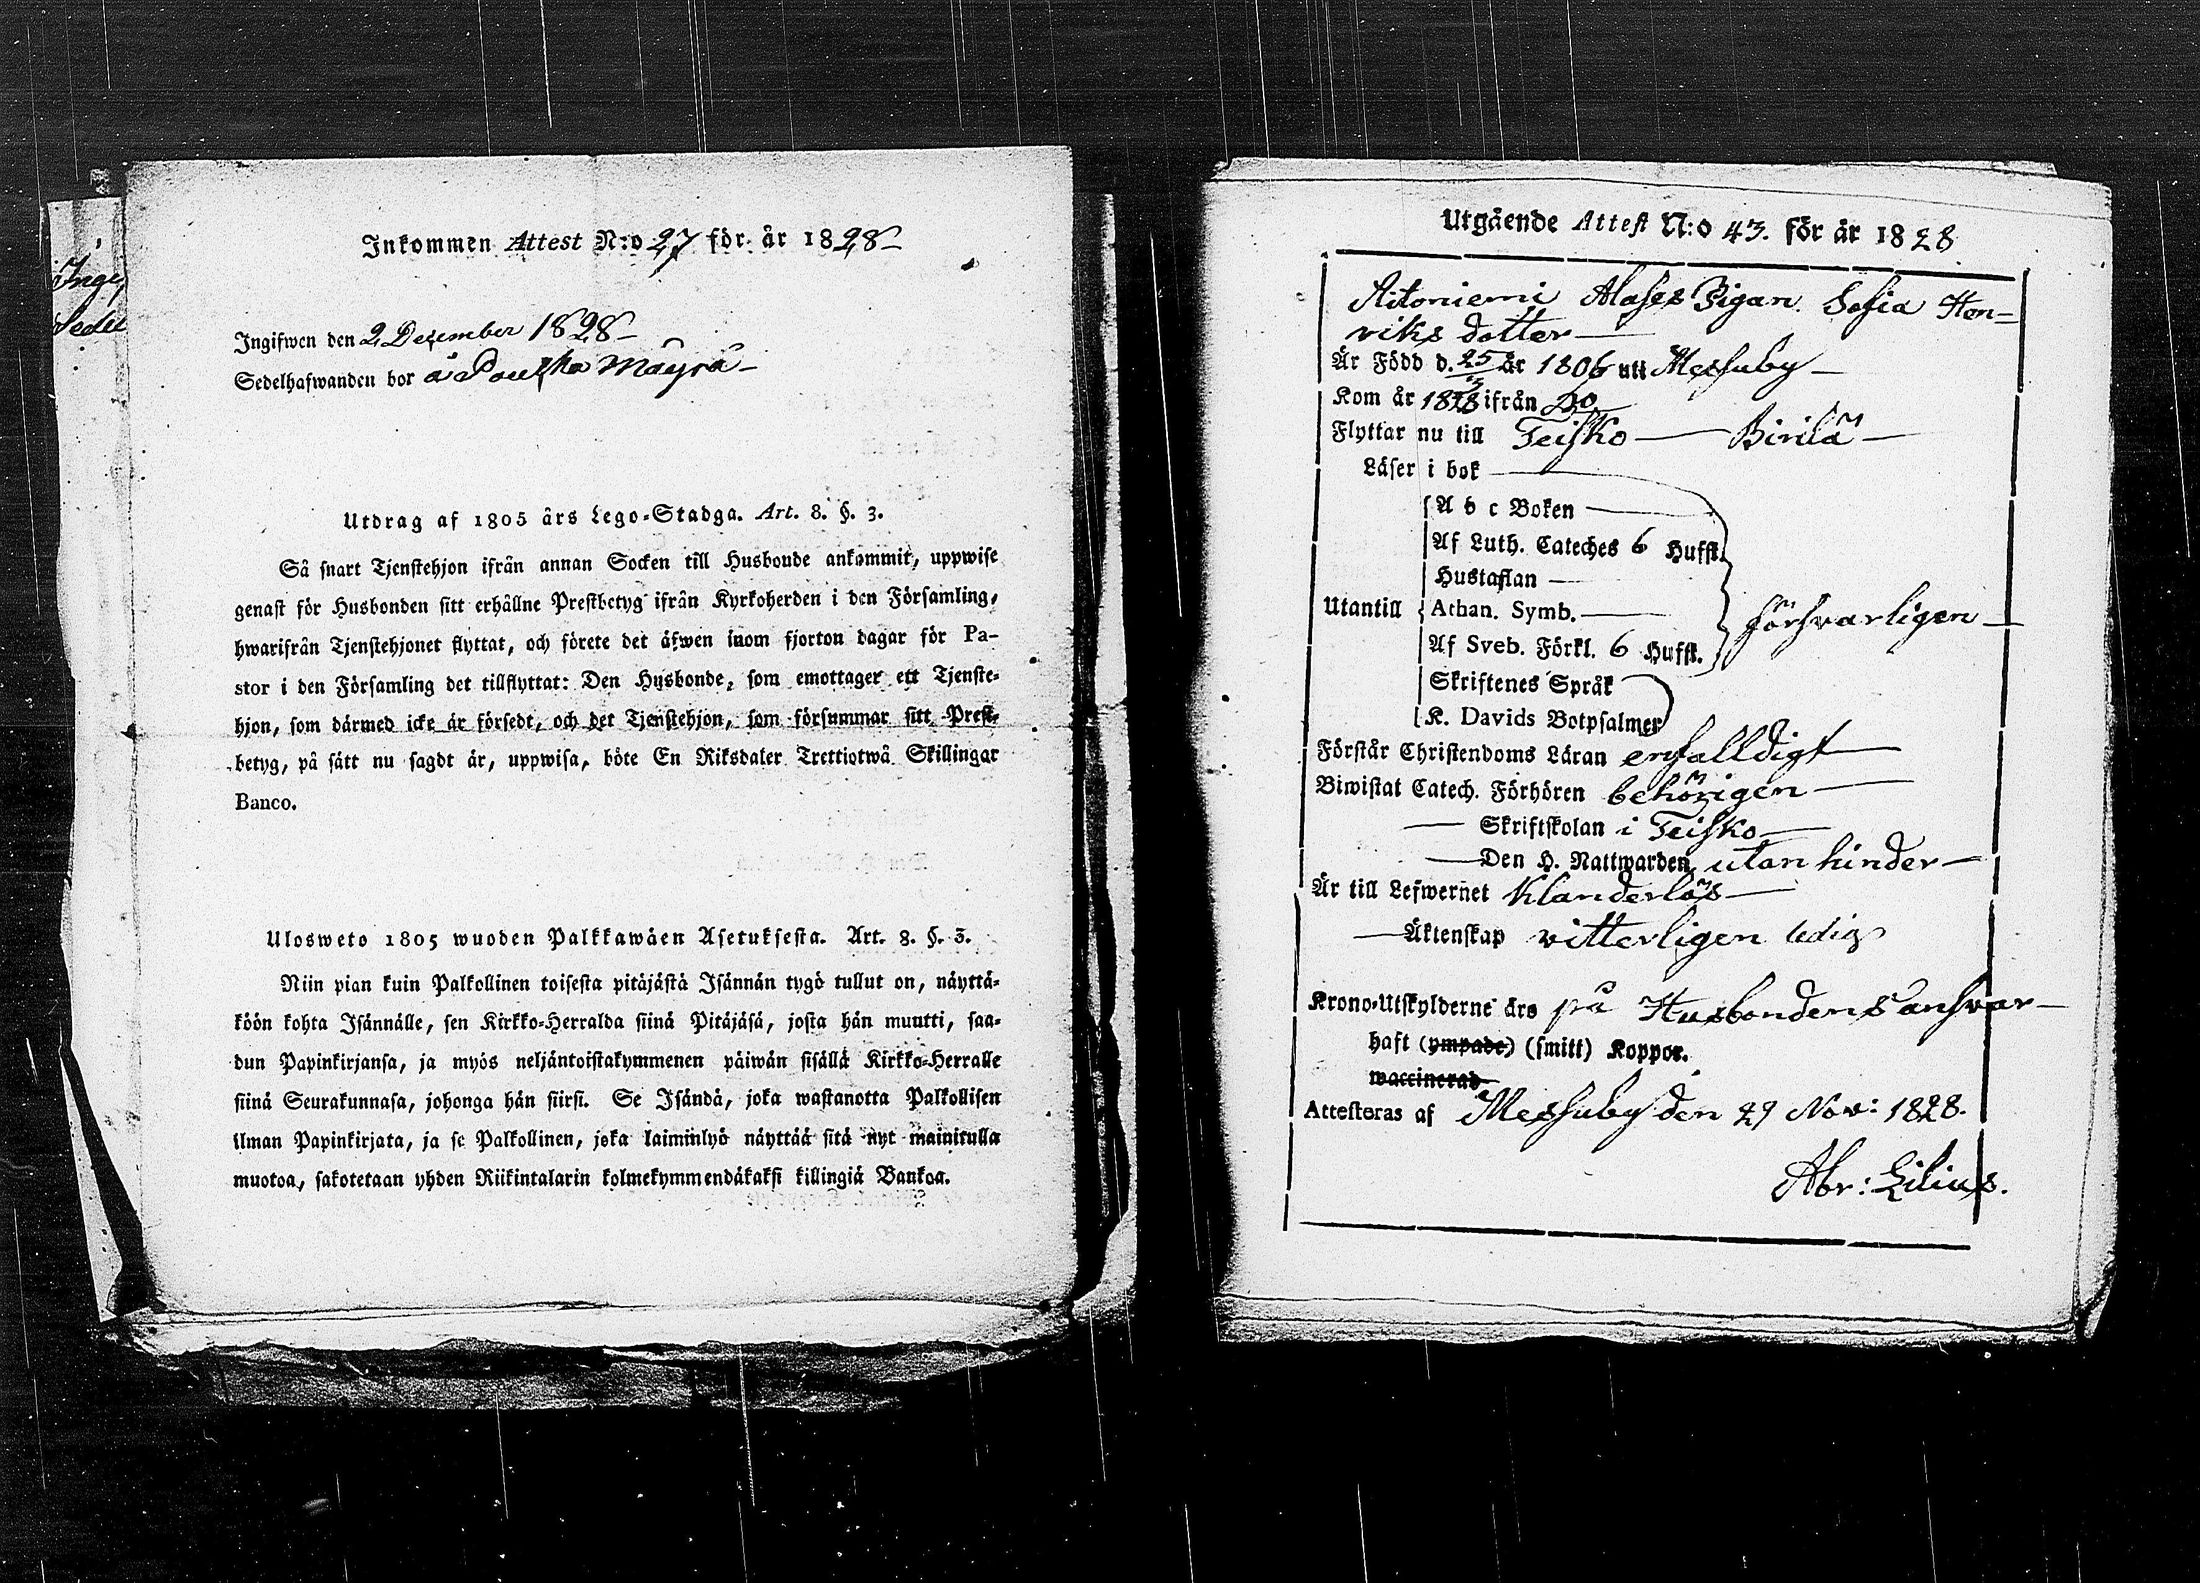 Inge
Sedel
Inkommen Attest N:o 27 för år 1828
Ingifwen den 2 December 1828
Sedelhafwanden bor å Mäyrä
Utdrag af 1805 års Lego-Stadga. Art. 8. §. 3.
Så snart Tjenstehjon ifrån annan Socken till Husbonde ankommit, uppwise
genast för Husbonden sitt erhållne Prestbetyg ifrån Kyrkoherden i den Församling,
hwarifrån Tjenstehjonet flyttat, och förete det äfwen inom fjorton dagar för Pa-
stor i den Församling det tillflyttat: Den Husbonde, som emottager ett Tjenste-
hjon, som därmed icke är försedt, och det Tjenstehjon, som försummar sitt Prest-
betyg, på sätt nu sagdt är, uppwisa, böte En Riksdaler Trettiotwå Skillingar
Banco.
Ulosweto 1805 wuoden Palkkawäen Asetuksesta. Art. 8. §. 3.
Niin pian kuin Palkollinen toisesta pitäjästä Isännän tygö tullut on, näyttä-
köön kohta Isännälle, sen Kirkko-Herralda siinä Pitäjäsä, josta hän muutti, saa-
dun Papinkirjansa, ja myös neljäntoistakymmenen päiwän sisällä Kirkko-Herralle
siinä Seurakunnasa, johonga hän siirsi. Se Isändä, joka wastanotta Palkollisen
ilman Papinkirjata, ja se Palkollinen, joka laiminlyö näyttää sitä nyt mainitulla
muotoa, sakotetaan yhden Riikintalarin kolmekymmendäkaksi killingiä Bankoa.
Utgående Attest N:o 43. för år 1828
Aitoniemi Alases Pigan Sofia Hen-
riks dotter
Är Född d. 25/3 år 1806 uti Messuby
Kom år 1828 ifrån Do
Flyttar nu till Teisko Birilä
Läser i bok
A b c Boken
Af Luth. Cateches 6 Hufst.
Hustaflan
Utantill Athan. Symb. försvarligen
Af Sveb. Förkl. 6 Hufst.
Skriftenes Språk
K. Davids Botpsalmer
Förstår Christendoms Läran enfalldigt
Biwistat Catech. Förhören behörigen
Skriftskolan i Teisko
Den H. Nattwarden utan hinder
Är till Lefwernet Klanderlös
Äktenskap vitterligen ledig
Krono-Utskylderne äro på Husbondens answar
haft (ympade) (smitt) Koppor.
waccinerad
Attesteras af Messuby den 29 Nov: 1828.
Abr: Lilius.